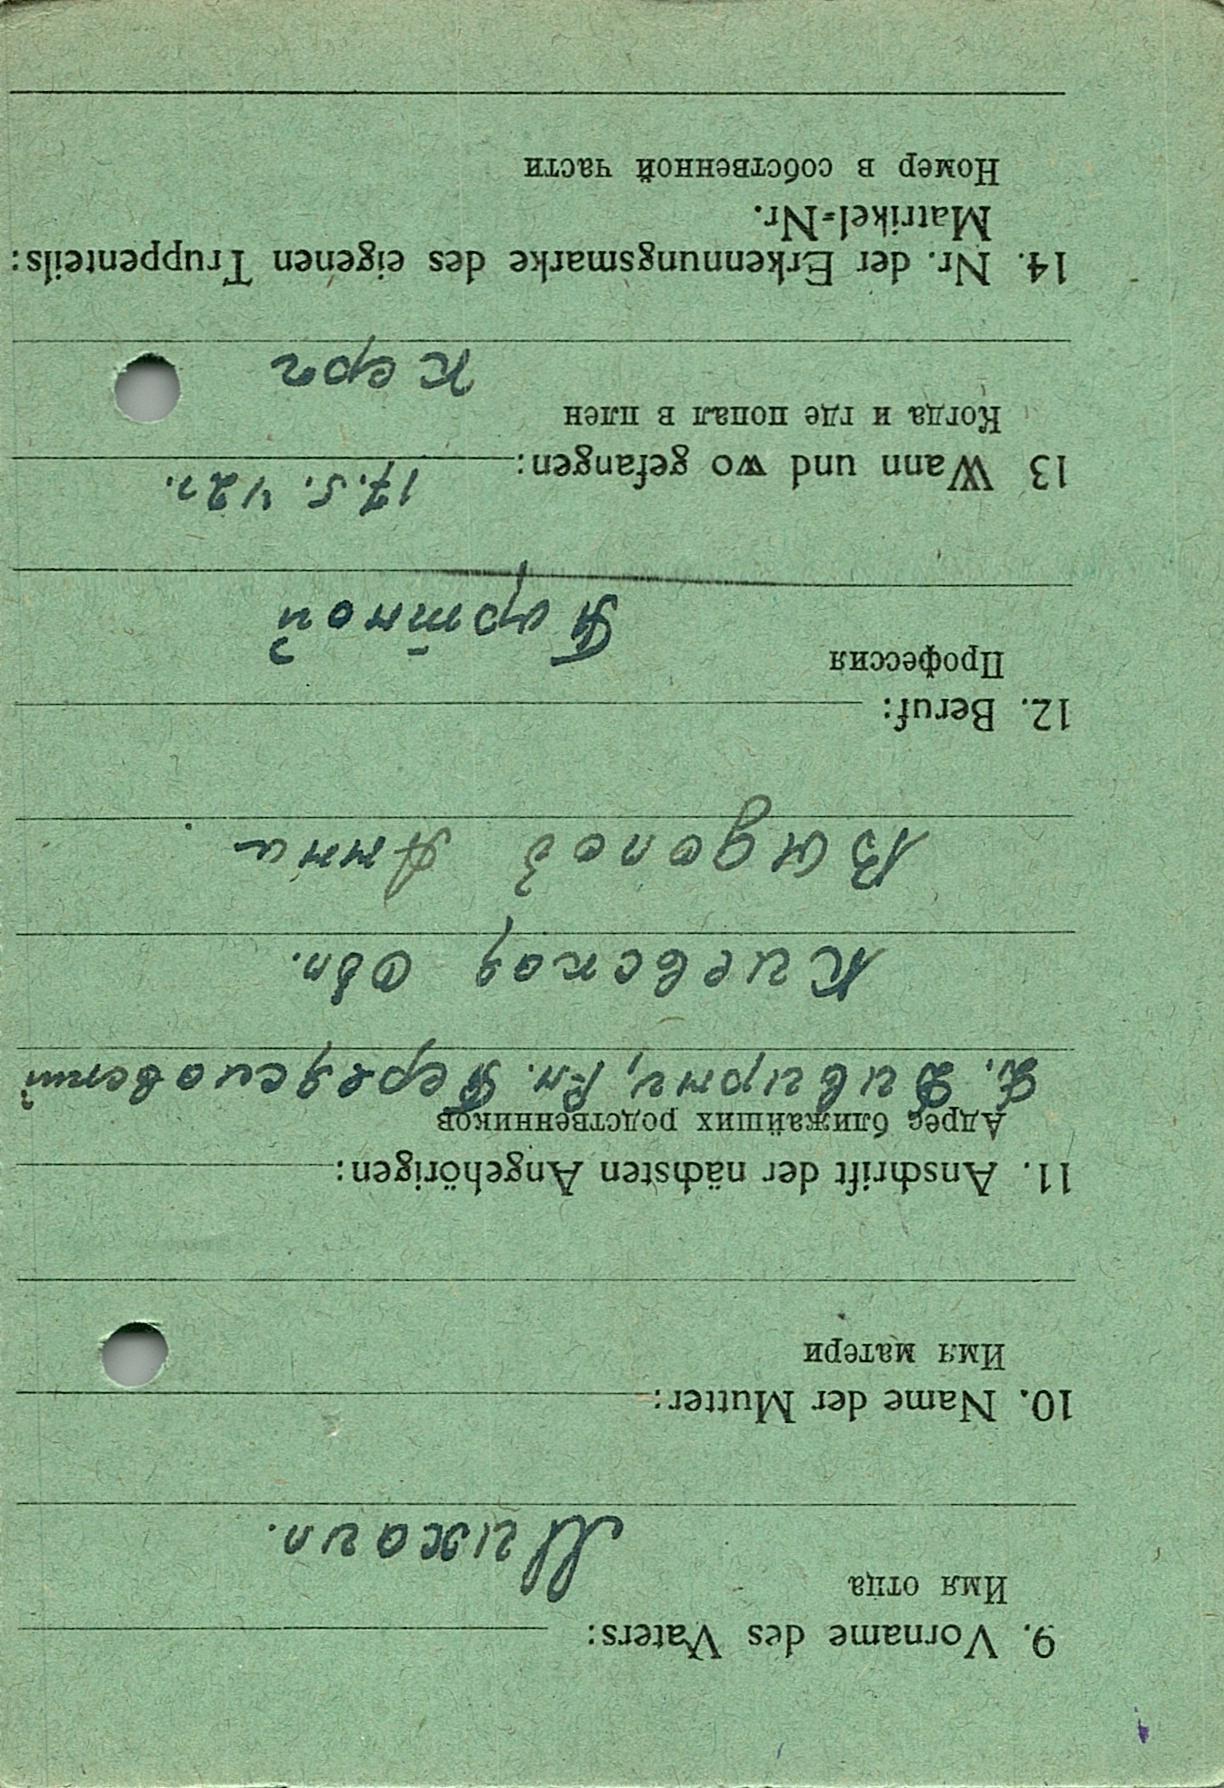 9. Vorname des Vaters:
Имя отца
Михаил.
10. Name der Mutter:
Имя матери
11. Anschrift der nächsten Angehörigen:
Адрес ближайших родственников
Рн.
Киевская Обл.
Анна
12. Beruf:
Профессия
Партной
13 Wann und wo gefangen:
17.5.42г.
Когда и где попал в плен
Керч
14. Nr. der Erkennungsmarke des eigenen Truppenteils:
Matrikel-Nr.
Номер в собственной части